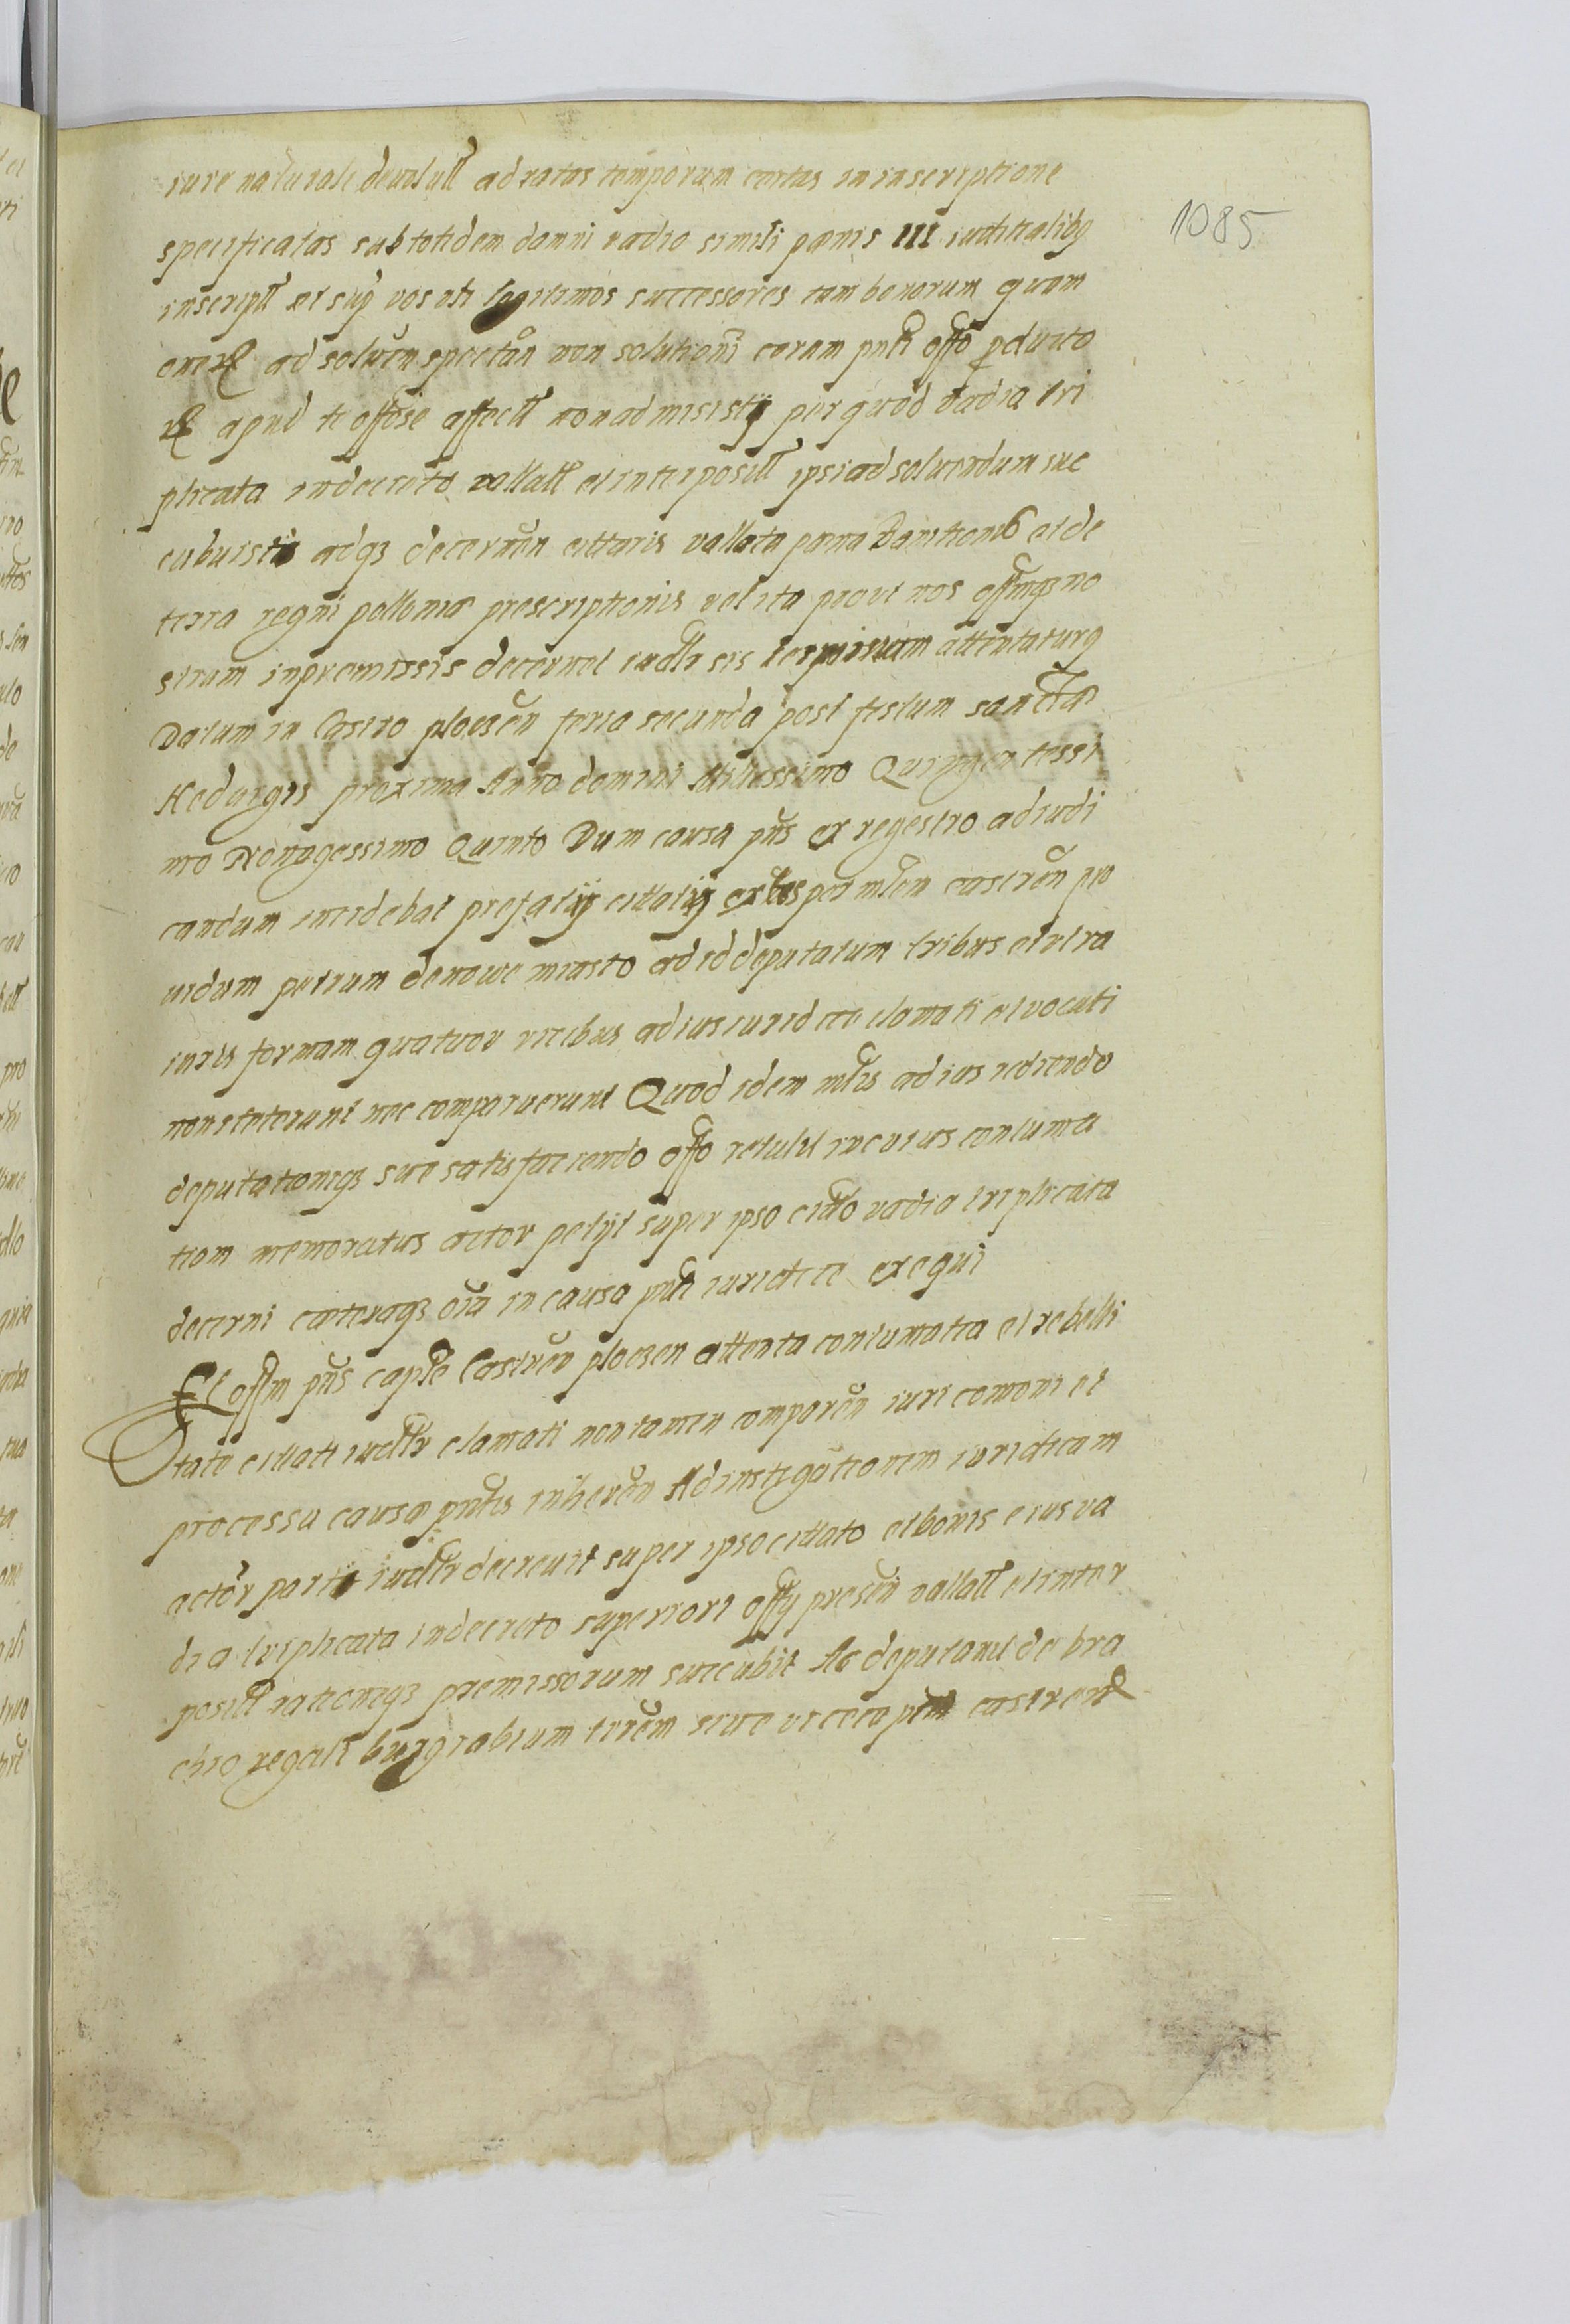 iure naturali devolutt ad ratas temporum certas in inscriptione
1085
specificatas sub totidem damni vadio simili pœnis III iuditialibq
inscriptt et sup vos uti legitimos successores tam bonorum quam
oneru ad solueñ spectañ non solutioni coram pnti offo pducto
apud te offose affectt non admisistis per quod vadia tri
plicata in decreto vallatt et interposit ipsi ad soluendum suc
cubuistis adqz decerneñ cittaris vallata pœna banitionis et de
terra regni polloniæ proscriptionis vel ita prout nos offmqz no
strum in premissis decernet iudlr sis terminum attentaturq
Datum in Castro ploczeñ feria secunda post festum sanctæ
Heduigis proxima Anno domini Millessimo Quingentessi
mo Nonagessimo Quinto Dum causa pñs ex regestro adiudi
candum incidebat prefatij cittatij extes per mlem castreñ pro
uidum petrum de nowe miasto ad id deputatum tribus et ultra
iuris formam quatuor vicibus ad ius iuridice clamati et vocati
non steterunt nec comparuerunt Quod idem mlis ad ius redeundo
deputationiqz sue satisfaciendo offo retulit in cuius contuma
tiam memoratus actor petijt super ipso citto vadia triplicata
decerni cæteraqz oia in causa pnti iuridice exequi
Et offm pñs captle Castreñ ploczen attenta contumatia et rebelli
tate cittati iudlr clamati non tamen compareñ iuri comoni et
processu causæ pntis inhereñ Ad instigationem iuridicam
actor partis iudlr decreuit super ipso cittato et bonis eius va
dia triplicata in decreto superiori offij preseñ vallatt et inter
posit rationeqz premissorum succubit Ac deputauit de bra
chio regali burgrabium terrem siue vicecaptm castreñ